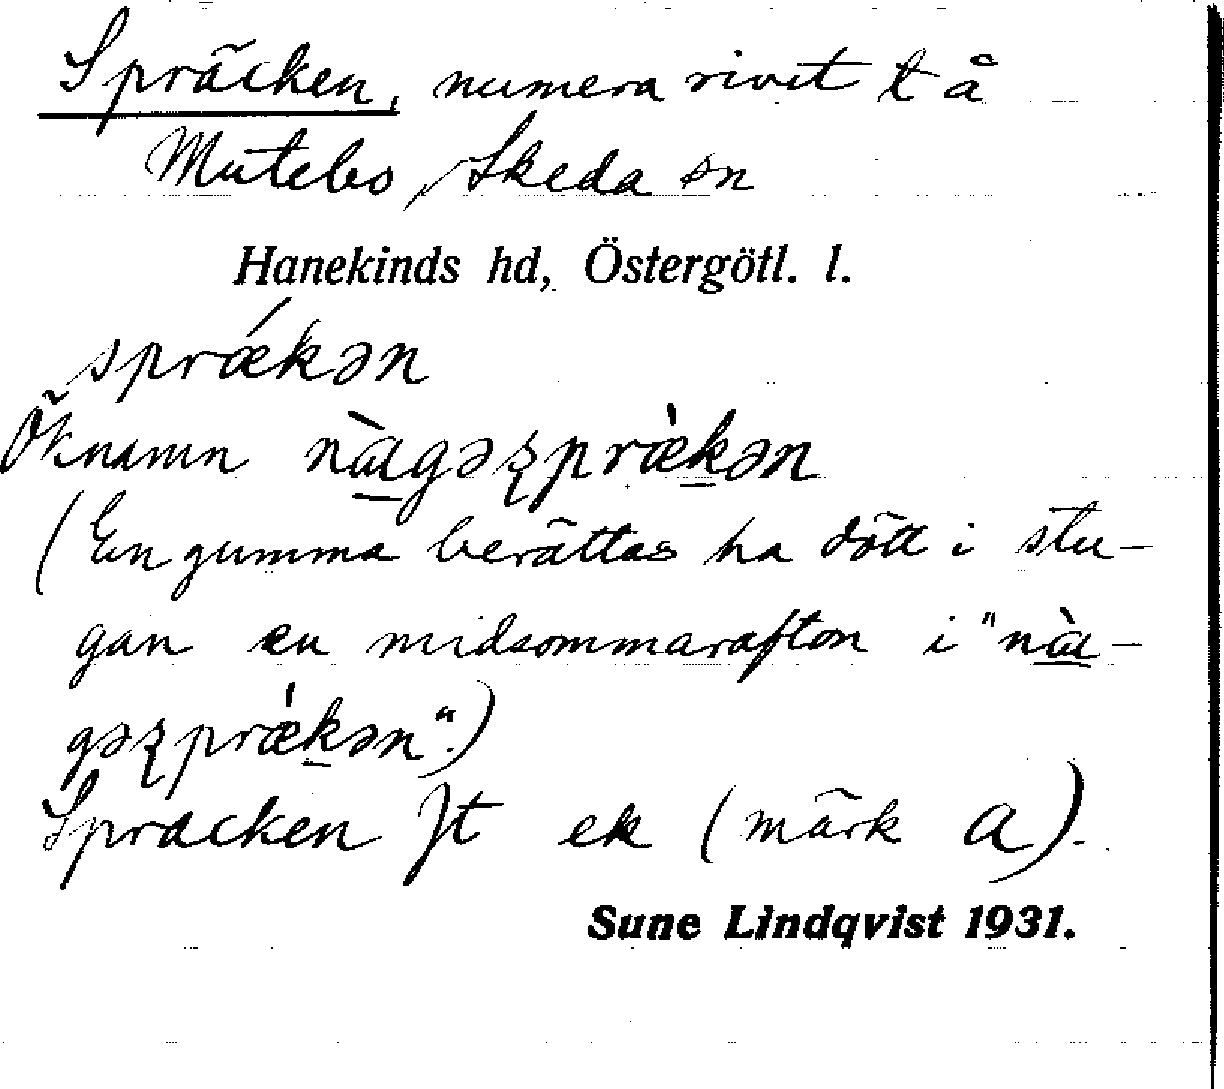 Spräcken, numera rivet t å
Mutebo, Skeda sn
Hanekinds hd, Östergötl. l.
sprǽkən
Öknamn nàgəspræ̀kən
(En gumma berättas ha dött i stu-
gan en midsommarafton i "nà-
gəspræ̀kən".)
Spracken Jt ek (märk a).
Sune Lindqvist 1931.